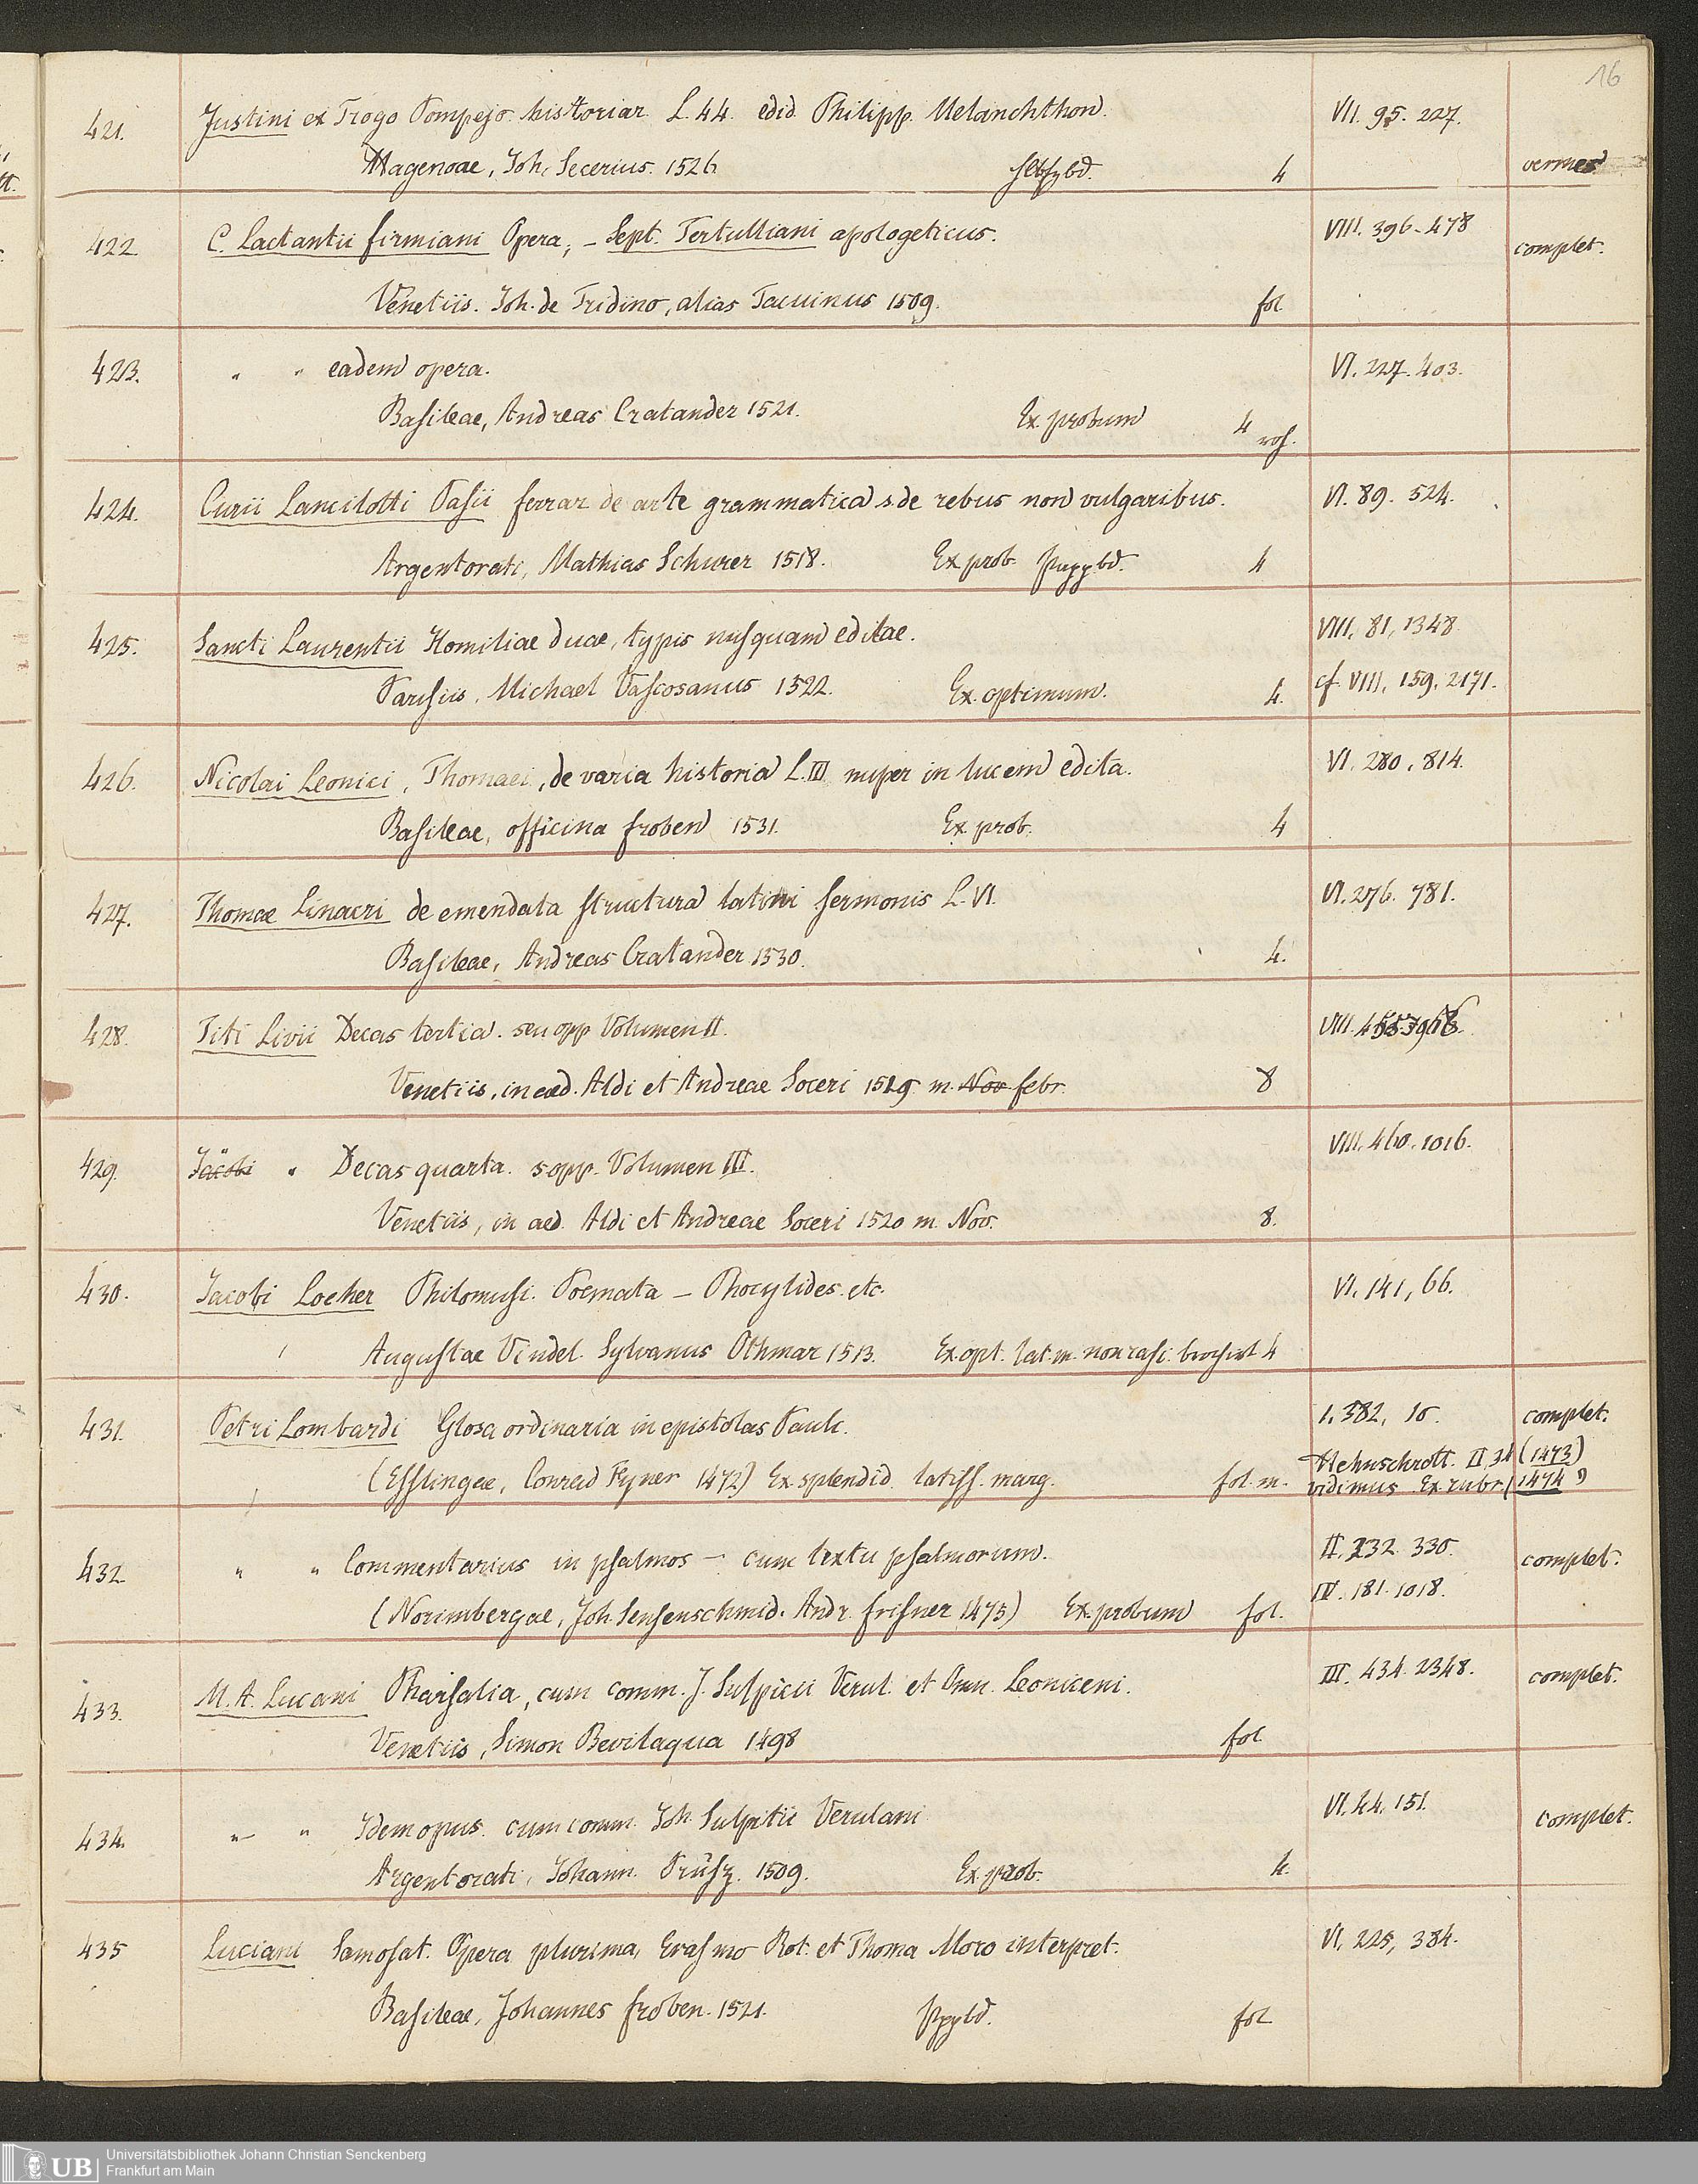 16
421. Justini ex Trogo Pompejo historiar. L. 44. edid. Philipp. Melanchthon. VII. 95. 227.
Hagenoae, Joh. Secerius. 1526. Hlbfzbd. 4 vermes
422. C. Lactantii firmiani Opera, – Sept. Tertulliani apologeticus. VIII. 396. 478 complet.
Venetiis. Joh. de Tridino, alias Tacuinus 1509. fol.
423. " " eadem opera. VI. 227. 403.
Basileae, Andreas Cratander 1521. Ex. probum 4
424. Curii Lancilotti Pasii ferrar de arte grammatica s. de rebus non vulgaribus. VI. 89. 524.
Argentorati, Mathias Schurer 1518. Ex. prob. Pappbd. 4
425. Sancti Laurentii Homiliae duae, typis nusquam editae. VIII. 81, 1348.
Parisiis, Michael Vascosanus 1522. Ex. optimum. 4. cf. VIII, 159, 2171.
426. Nicolai Leonici, Thomaei, de varia historia L. III nuper in lucem edita. VI. 280. 814.
Basileae, officina froben 1531. Ex. prob. 4
427. Thomae Linacri de emendata structura latini sermonis L. VI. VI. 276. 781.
Basileae, Andreas Cratander 1530. 4.
428. Titi Livii Decas tertia. seu opp Volumen II. VIII.
Venetiis, in aed. Aldi et Andreae Soceri 1519 m. Nov febr. 8
429. Jacobi " Decas quarta. s opp. Volumen III. VIII. 460. 1016.
Venetiis, in aed. Aldi et Andreae Soceri 1520 m. Nov. 8.
430. Jacobi Locher Philomusi. Poemata – Phocylides. etc. VI. 141, 66.
Augustae Vindel. Sylvanus Othmar 1513. Ex. opt. lat. m. non rasi. brochirt 4
431. Petri Lombardi Glosa ordinaria in epistolas Pauli. I. 382, 10. complet.
(Esslingae, Conrad Fyner 1472) Ex. splendid. latiss. marg. fol. m. II 34 (1473)
vidimus Ex. rubr. (1474)
432. " " Commentarius in psalmos – cum textu psalmorum. II. 232. 330. complet.
(Norimbergae, Joh. Sensenschmid. Andr. frisner 1475) Ex. probum fol. IV. 181. 1018.
433. M. A. Lucani Pharsalia, cum comm. J. Sulpicii Verul. et Omn. Leoniceni. III. 434. 2348. complet.
Venetiis, Simon Bevilaqua 1498 fol.
434. " " Idem opus. cum comm. Joh. Sulpitii Verulani VI. 44. 151. complet.
Argentorati, Johann. Prüsz. 1509. Ex. prob. 4.
435 Luciani Samosat. Opera plurima, Erasmo Rot. et Thoma Moro interpret. VI. 225, 384.
Basileae, Johannes froben. 1521. Pppbd. fol
UB Universitätsbibliothek Johann Christian Senckenberg
Frankfurt am Main